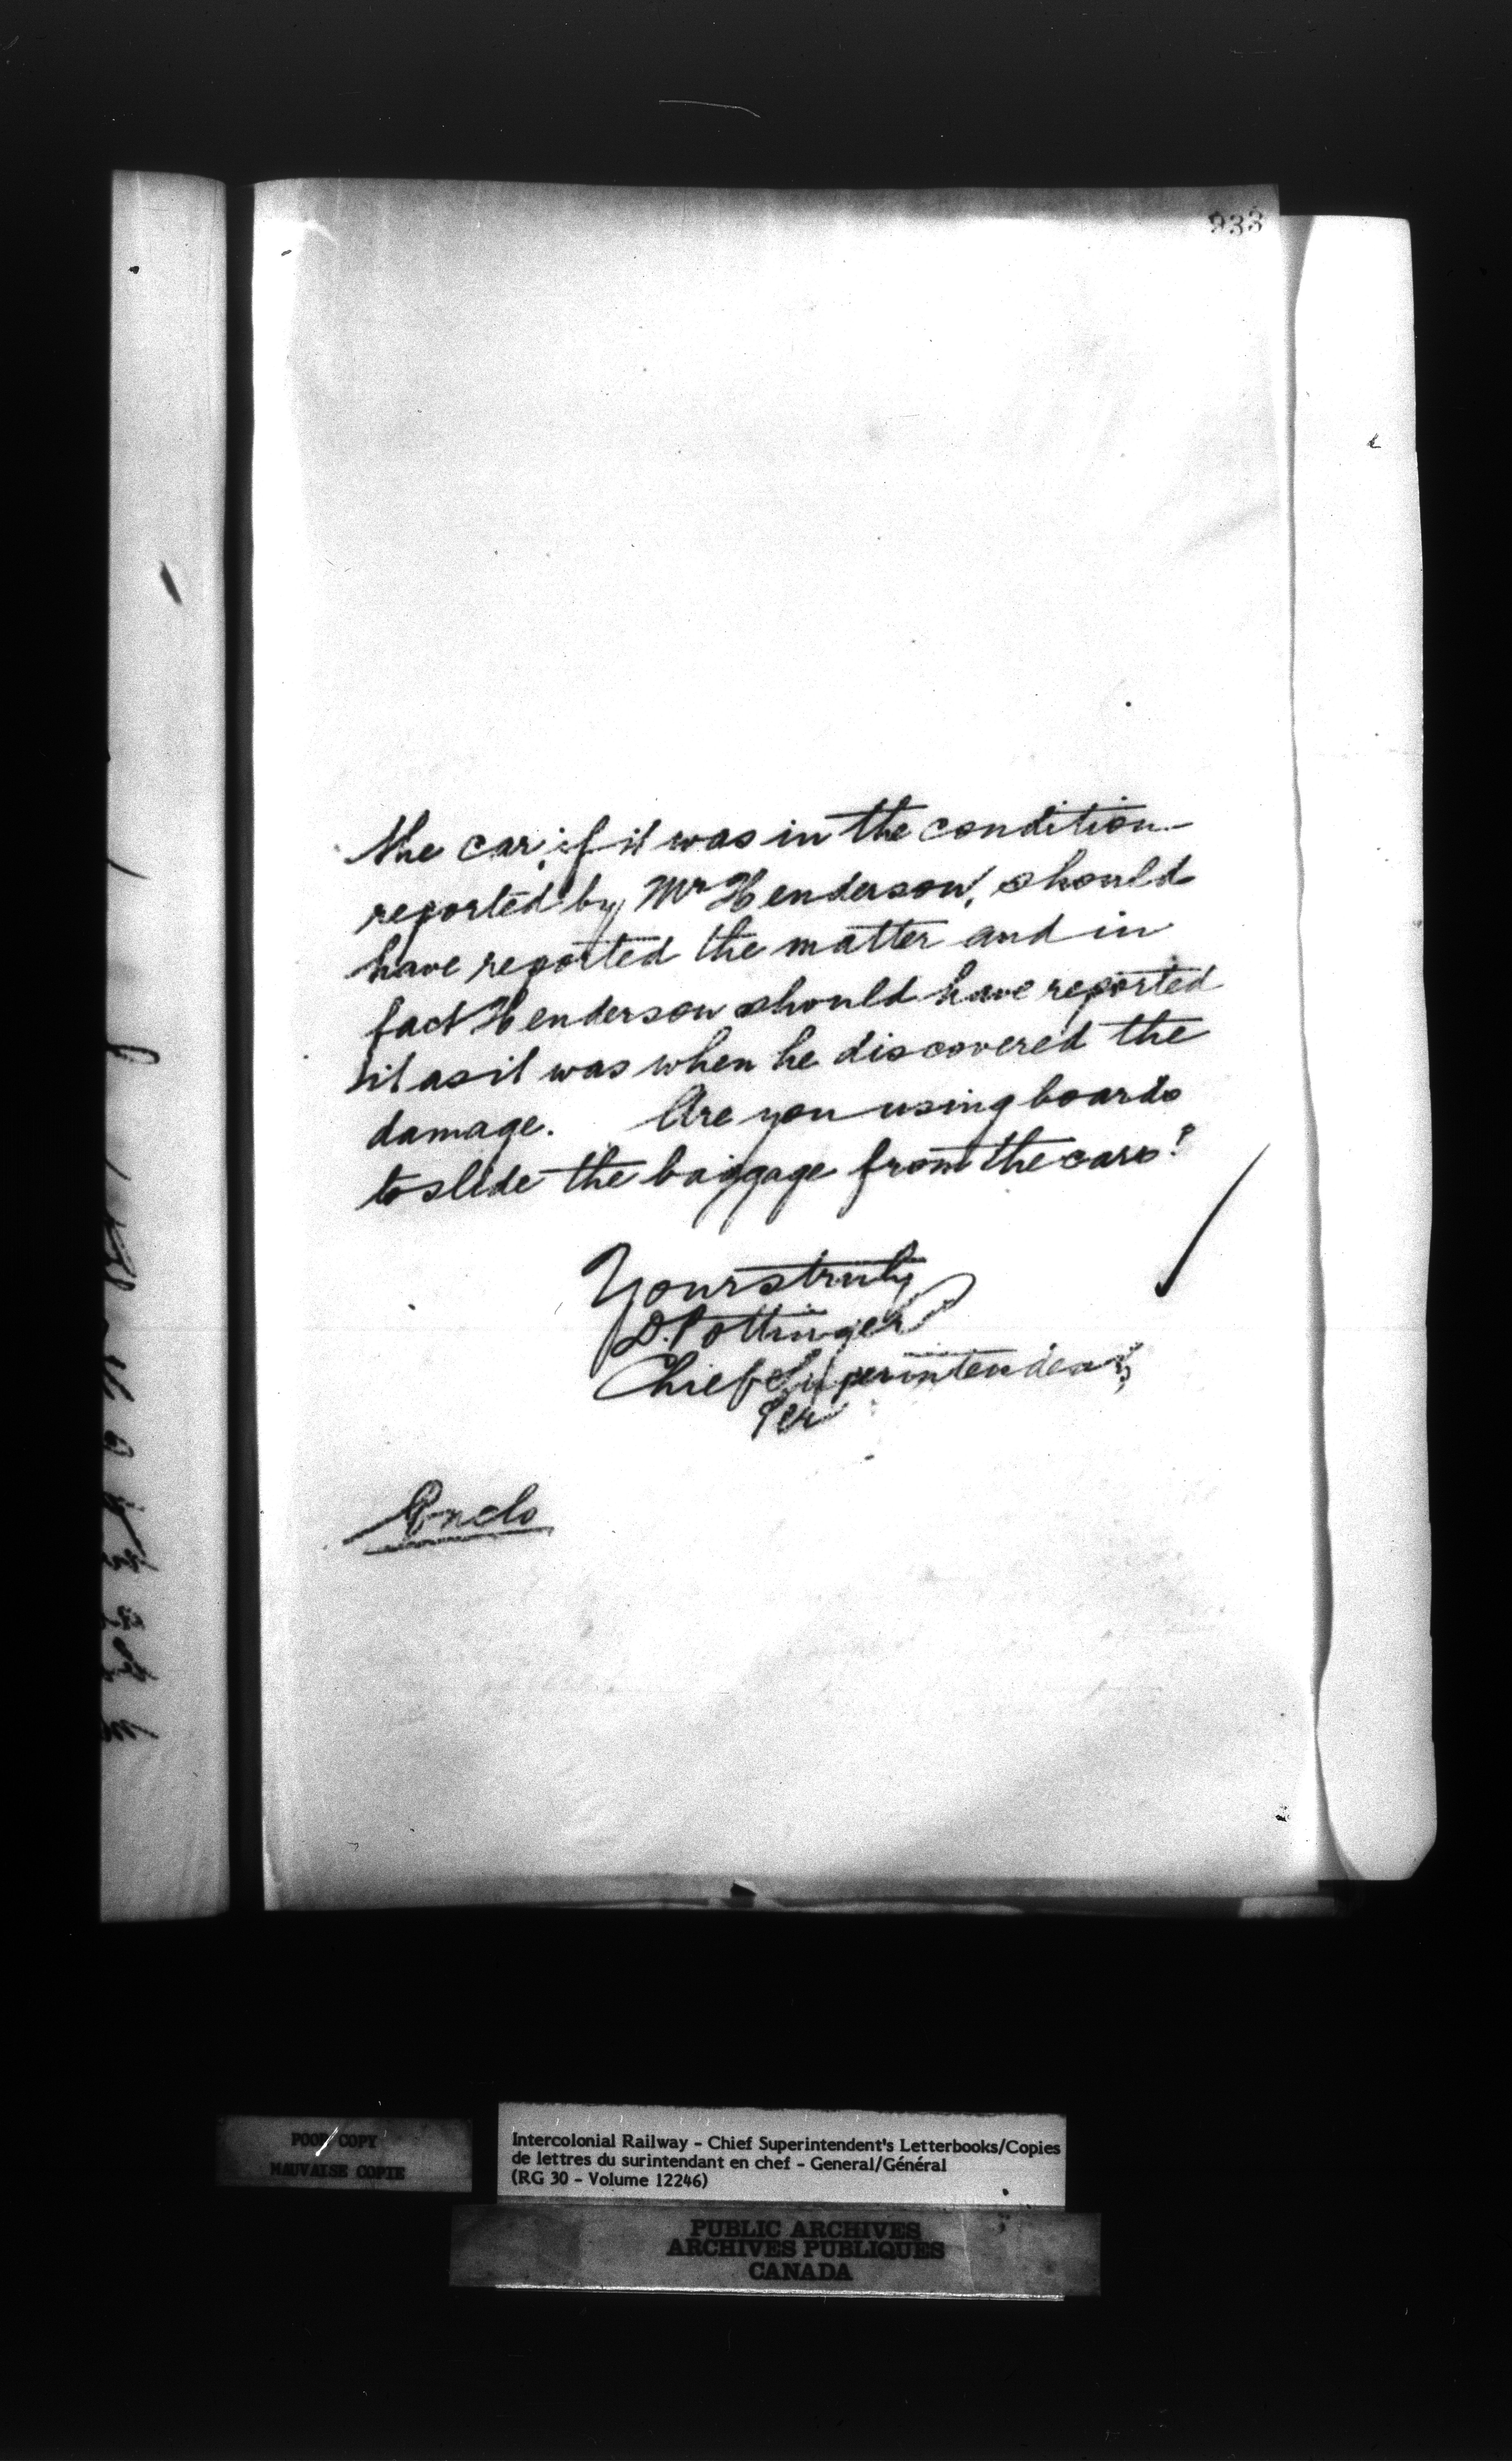 933
the car, if it was in the condition
reported by Mr Henderson, should
have reported the matter and in
fact Henderson should have reported
it as it was when he discovered the
damage. Are you using boards
to slide the baggage from the cars?
Yours truly
D. Pottinger
Chief Superintendent,
Per
Enclo
POOR COPY
MAUVAISE COPIE
Intercolonial Railway - Chief Superintendent's Letterbooks/Copies
de lettres du surintendant en chef - General/Général
(RG 30 - Volume 12246)
PUBLIC ARCHIVES
ARCHIVES PUBLIQUES
CANADA